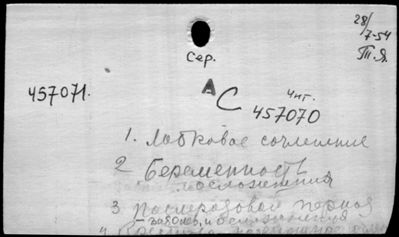 28/7-54
Т.Я.
Сер.
457071.
А
С чит.
457070
1. Лобковое сочленение
2 Беременность
осложнения
3 Послеродовой период
заболев. и осложнения
4